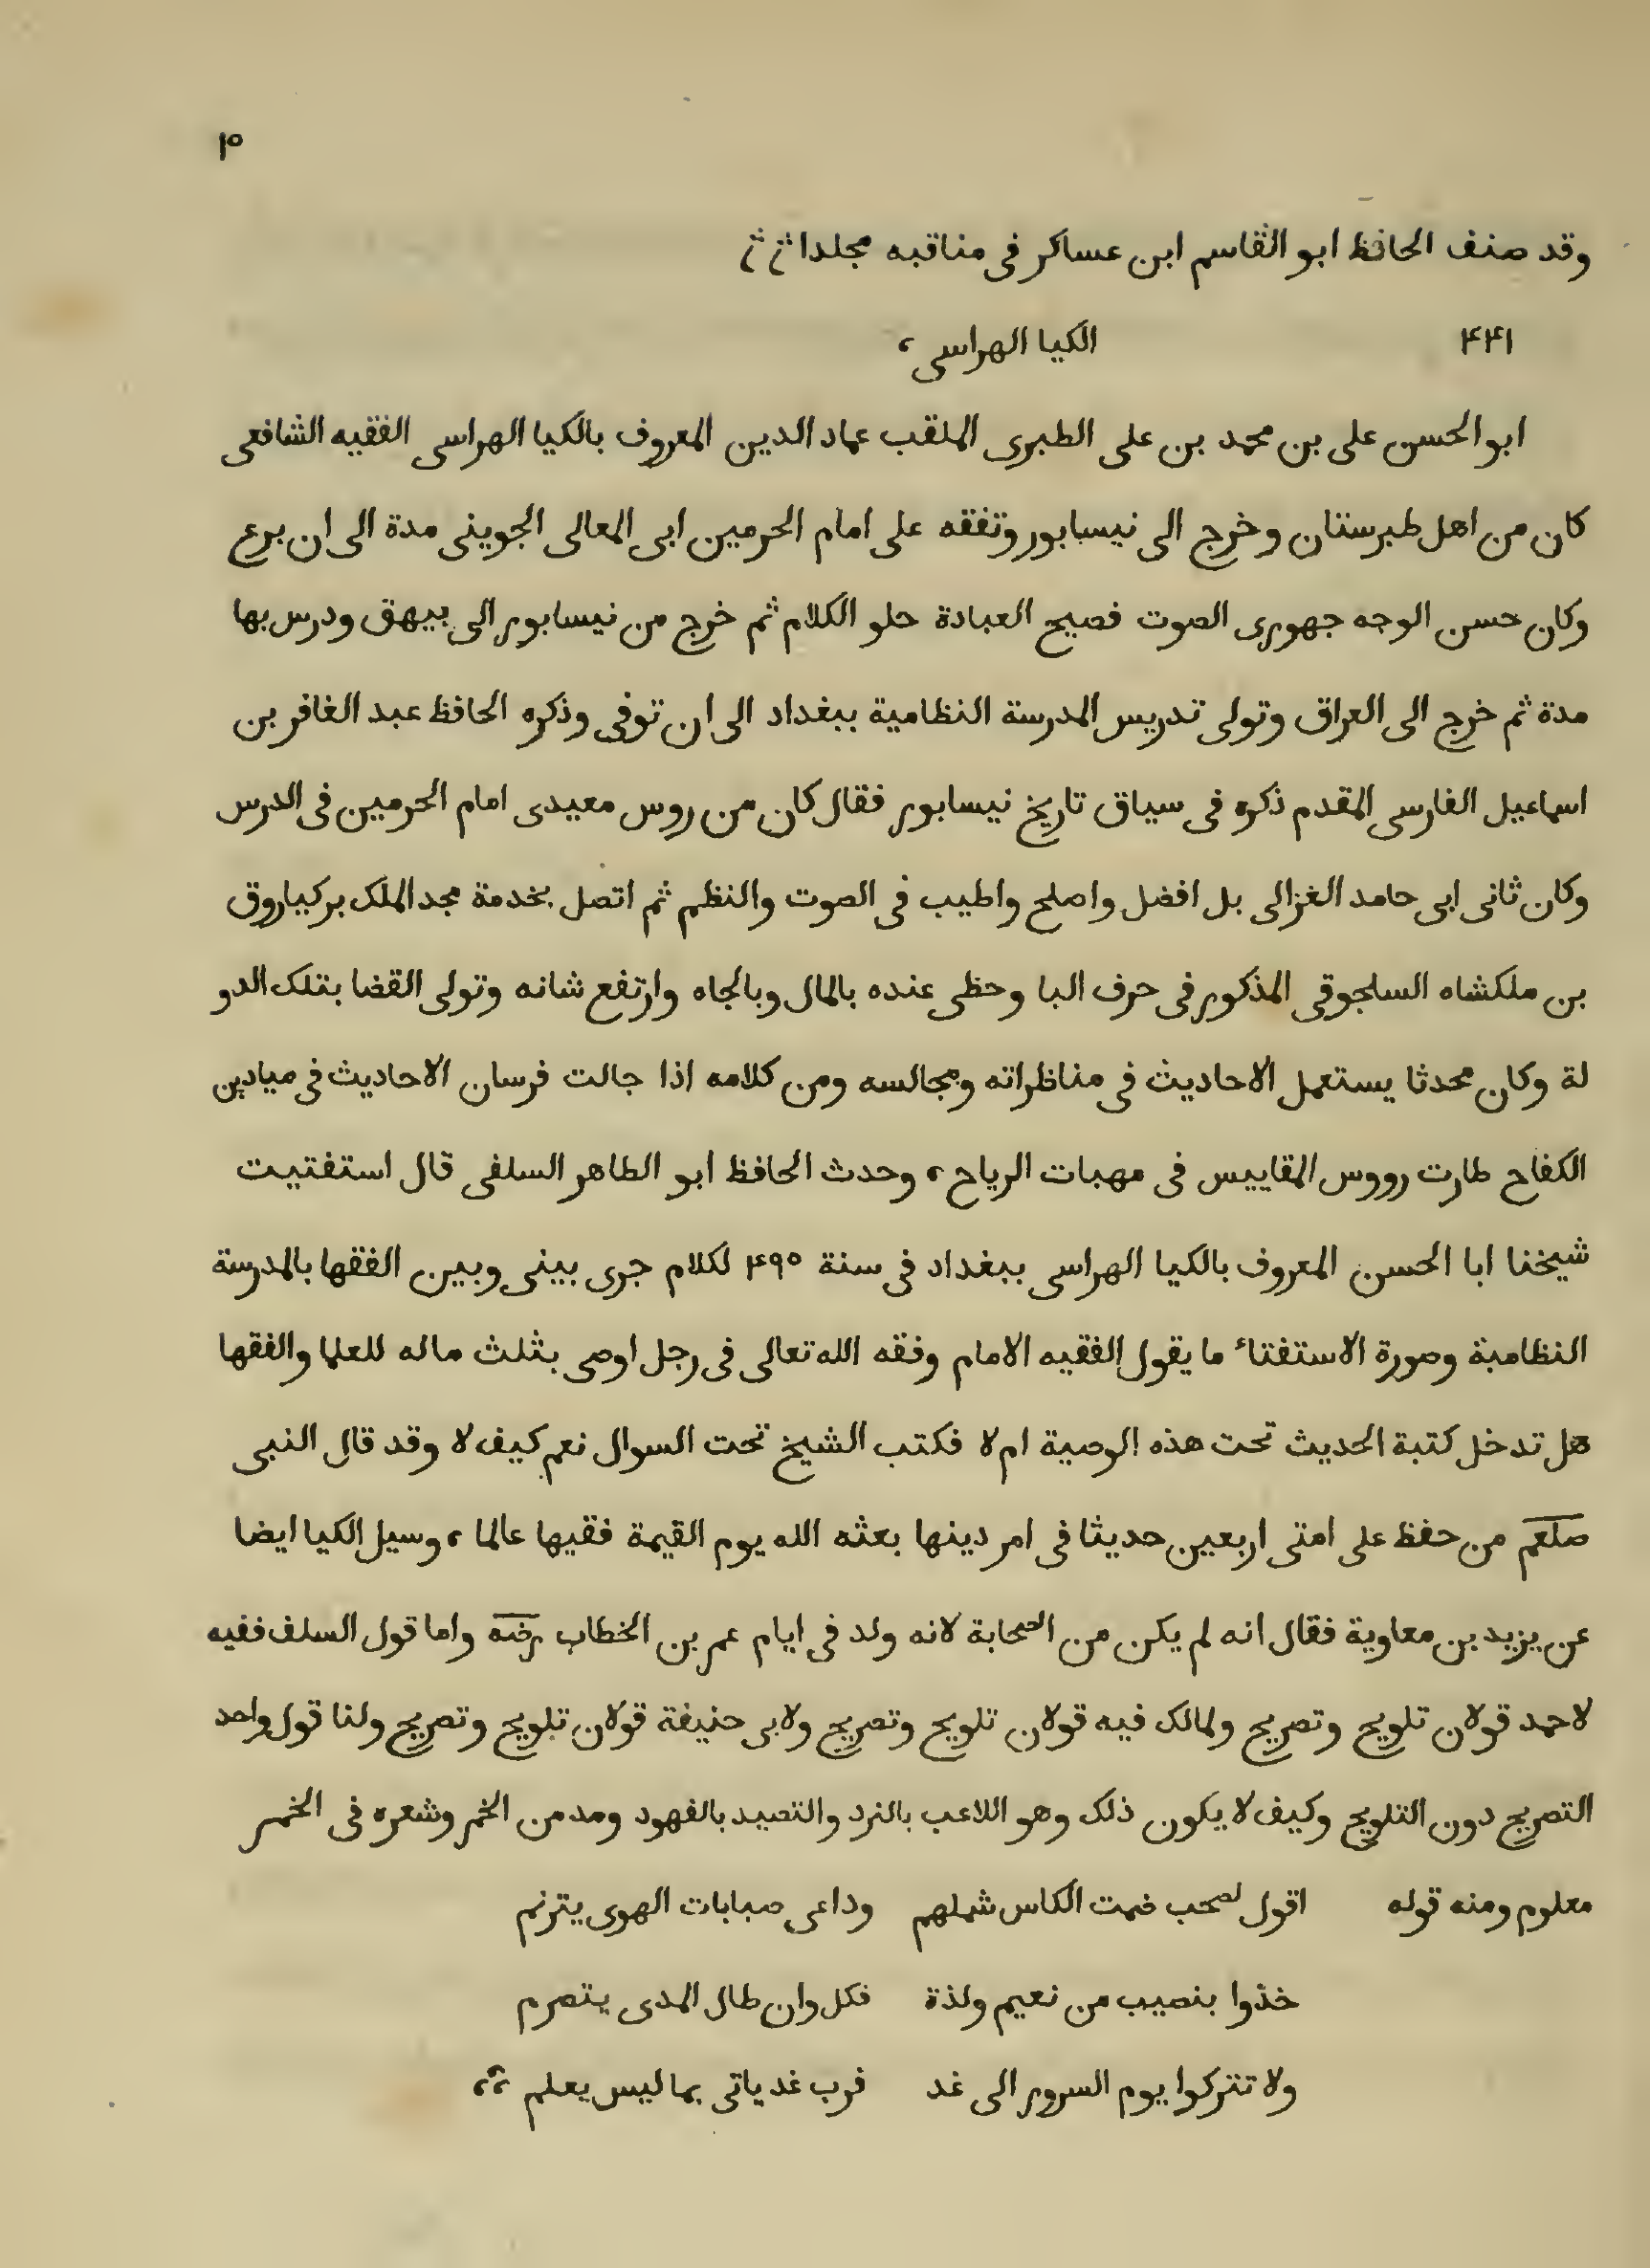 ٣٥
وقد صنف الحافظ ابو القاسم ابن عساكر فى مناقبه مجلدا
٤٤١ الكيا الهراسى ،
ابو الحسن على بن محمد بن على الطبرى الملقب عماد الدين المعروف بالكيا الهراسى الفقيه الشافعى
كان من اهل طبرستان وخرج الى نيسابور وتفقه على امام الحرمين ابى المعالى الجوينى مدة الى ان برع
وكان حسن الوجه جهورى الصوت فصيح العبادة حلو الكلام ثم خرج من نيسابور الى بيهق ودرس بها
مدة ثم خرج الى العراق وتولى تدريس المدرسة النظامية ببغداد الى ان توفى وذكره الحافظ عبد الغافر بن
اسماعيل الفارسى المقدم ذكره فى سياق تاريخ نيسابور فقال كان من روس معيدى امام الحرمين فى الدرس
وكان ثانى ابى حامد الغزالى بل افضل واصلح واطيب فى الصوت والنظم ثم اتصل بخدمة مجد الملك بركياروق
بن ملكشاه السلجوقى المذكور فى حرف البا وحظى عنده بالمال وبالجاه وارتفع شانه وتولى القضا بتلك الدو
لة وكان محدثا يستعمل الاحاديث فى مناظراته ومجالسه ومن كلامه اذا جالت فرسان الاحاديث فى ميادين
الكفاح طارت رووس المقاييس فى مهبات الرياح ، وحدث الحافظ ابو الطاهر السلفى قال استفتيت
شيخنا ابا الحسن المعروف بالكيا الهراسى ببغداد فى سنة ٤٩٥ لكلام جرى بينى وبين الفقها بالمدرسة
النظامية وصورة الاستفتاء ما يقول الفقيه الامام وفقه الله تعالى فى رجل اوصى بثلث ماله للعلما والفقها
هل تدخل كتبة الحديث تحت هذه الوصية ام لا فكتب الشيخ تحت السوال نعم كيف لا وقد قال النبى
صلعم من حفظ على امتى اربعين حديثا فى امر دينها بعثه الله يوم القيمة فقيها عالما ، وسيل الكيا ايضا
عن يزيد بن معاوية فقال انه لم يكن من الصحابة لانه ولد فى ايام عمر بن الخطاب رضه واما قول السلف ففيه
لاحمد قولان تلويح وتصريح ولمالك فيه قولان تلويح وتصريح ولابى حنيفة قولان تلويح وتصريح ولنا قول واحد
التصريح دون التلويح وكيف لا يكون ذلك وهو اللاعب بالنرد والتصيد بالفهود ومدمن الخمر وشعره فى الخمر
معلوم ومنه قوله اقول لصحب ضمت الكاس شملهم وداعى صبابات الهوى يترنم
خذوا بنصيب من نعيم ولذة فكل وان طال المدى يتصرم
ولا تتركوا يوم السرور الى غد فرب غد ياتى بما ليس يعلم